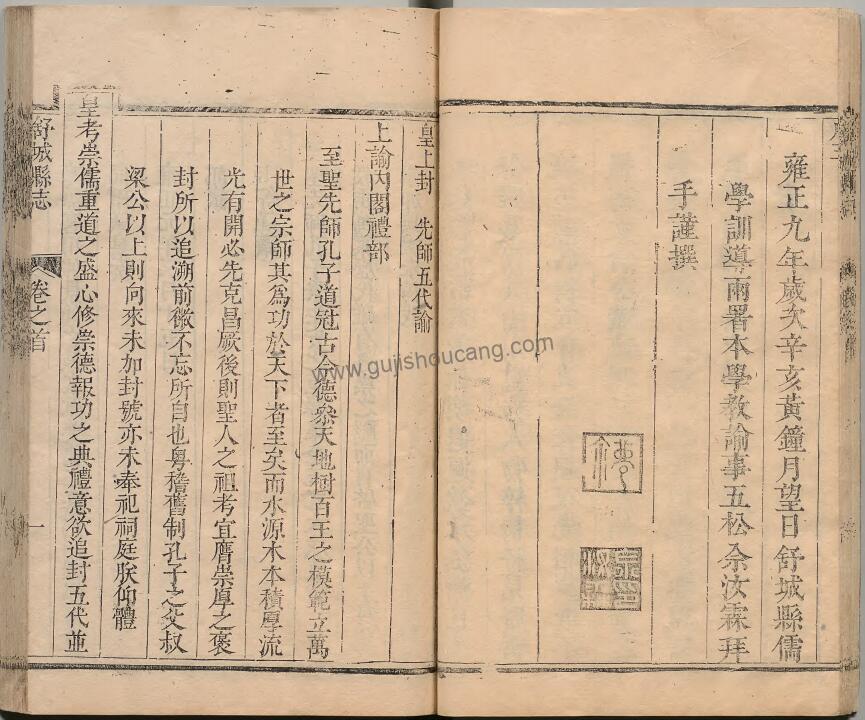 雍正九年歲次辛亥黃鐘月望日舒城縣儒
學訓導兼兩署本學教諭事五松余汝霖拜
手謹撰
皇上封　先師五代諭
上諭內閣禮部
至聖先師孔子道冠古今德參天地樹百王之模範立萬
世之宗師其爲功於天下者至矣而水源木本積厚流
光有開必先克昌厥後則聖人之祖考宜膺崇厚之褒
封所以追溯前徽不忘所自也粵稽舊制孔子之父叔
梁公以上則向來未加封號亦未奉祀祠庭朕仰體
皇考崇儒重道之盛心修崇德報功之典禮意欲追封五代並
舒城縣志
卷之首
一
www.gujishoucang.com